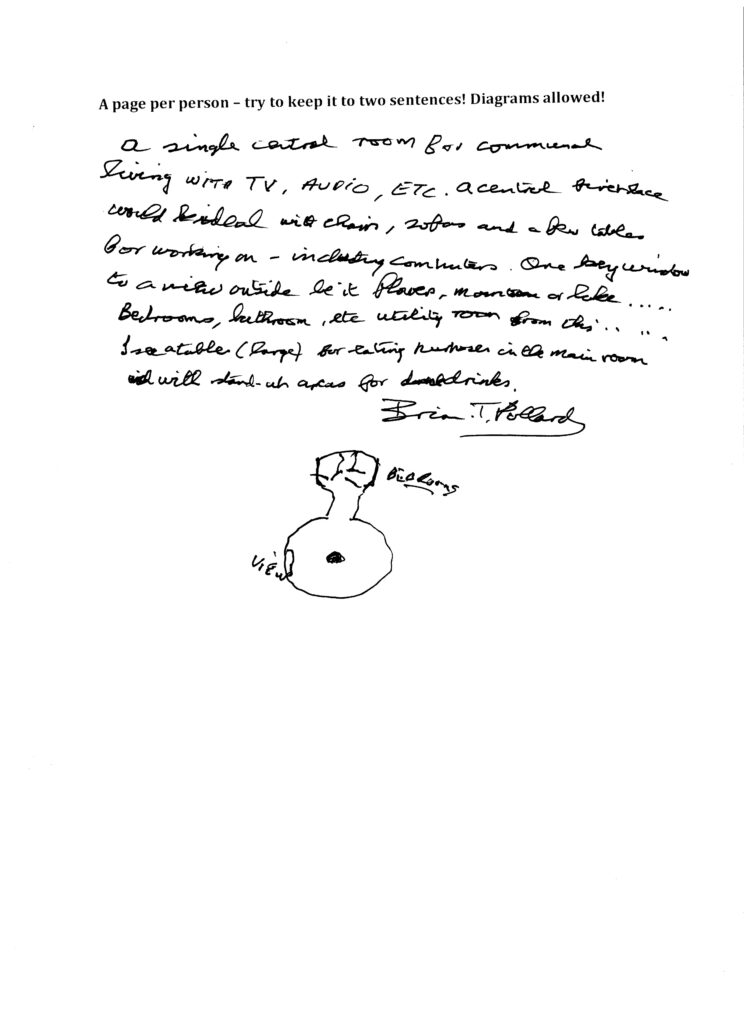 A page per person – try to keep it to two sentences! Diagrams allowed!
A single central room for communal
living with TV, AUDIO, ETC. A central fireplace
would be ideal with chairs, sofas and a few tables
for working on – including computers. One key window
to a view outside be it flowers, mountain or lake.....
Bedrooms, bathroom, etc utility room from this.. ..
I see a table (large) for eating purposes in the main room
with stand-up areas for drinks.
Brian T. Pollard
BedRooms
VIEW